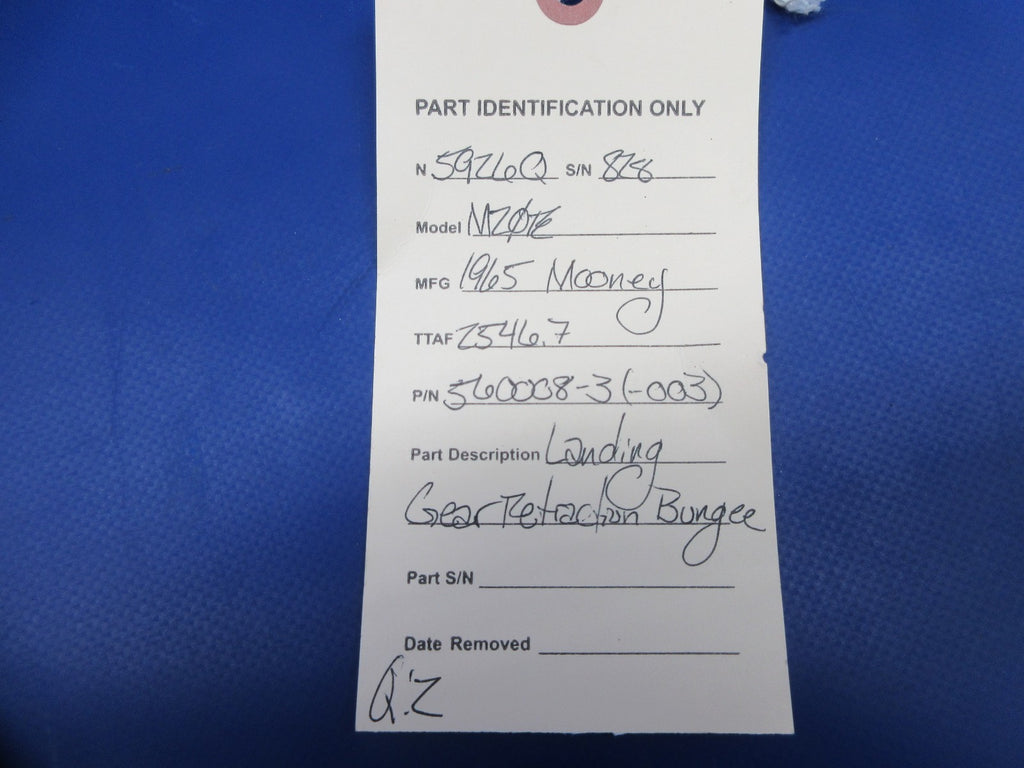 PART IDENTIFICATION ONLY
N 5926Q S/N 828
Model M20E
MFG 1965 Mooney
TTAF 2546.7
P/N 560008-3 (-003)
Part Description Landing
Gear Retraction Bungee
Part S/N
Date Removed
Q:2